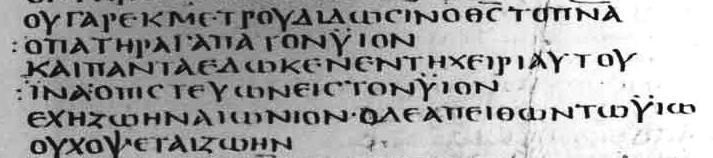 ΟΥΓΑΡΕΚΜΕΤΡΟΥΔΙΔΩϹΙΝΟΘϹΤΟΠΝΑ
:ΟΠΑΤΗΡΑΓΑΠΑΤΟΝΫΙΟΝ
ΚΑΙΠΑΝΤΑΕΔΩΚΕΝΕΝΤΗΧΕΙΡΙΑΥΤΟΥ
:ΪΝΑΟΠΙϹΤΕΥΩΝΕΙϹΤΟΝΫΙΟΝ
ΕΧΗΖΩΗΝΑΙΩΝΙΟΝ·ΟΔΕΑΠΕΙΘΩΝΤΩΫΙΩ
ΟΥΧΟΨΕΤΑΙΖΩΗΝ